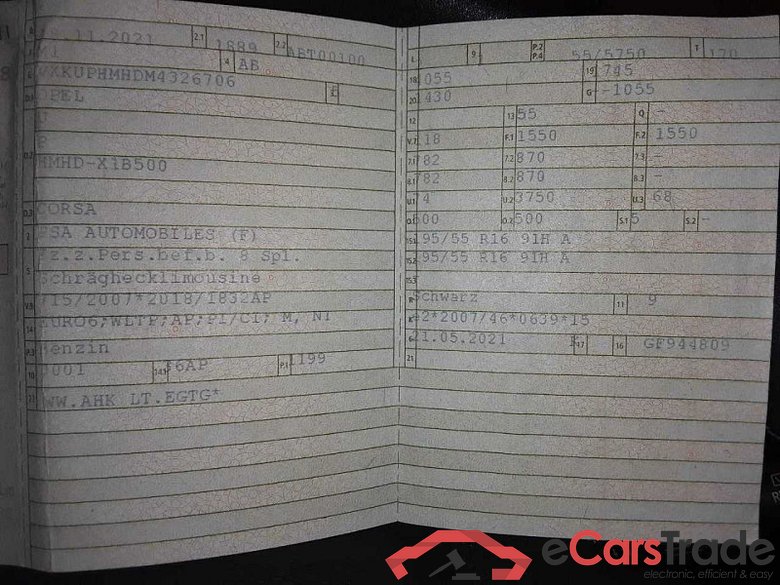 .11.2021 2.1 1889 2.2 ABT00100
M1 4 AB
VXKUPHMHDM4326706
OPEL
U
P
HMHD-X1B500
D.3 CORSA
2 PSA AUTOMOBILES (F)
Fz.z.Pers.bef.b. 8 Spl.
5 Schräghecklimousine
V.9 715/2007*2018/1832AP
14 EURO6;WLTP;AP;PI/CI; M, N1
P.3 Benzin
10 0001 14.1 36AP P.1 1199
22 WW.AHK LT.EGTG*
L 9 P.2 P.4 55/5750 T 170
18 055 19 745
20 430 G -1055
12 13 55 Q -
V.7 18 F.1 1550 F.2 1550
7.1 782 7.2 870 7.3 -
8.1 782 8.2 870 8.3 -
U.1 4 U.2 3750 U.3 68
O.1 500 O.2 500 S.1 5 S.2 -
15.1 95/55 R16 91H A
15.2 95/55 R16 91H A
15.3
R Schwarz 11 9
K e2*2007/46*0639*15
6 21.05.2021 17 16 GF944809
21
eCarsTrade
electronic, efficient & easy